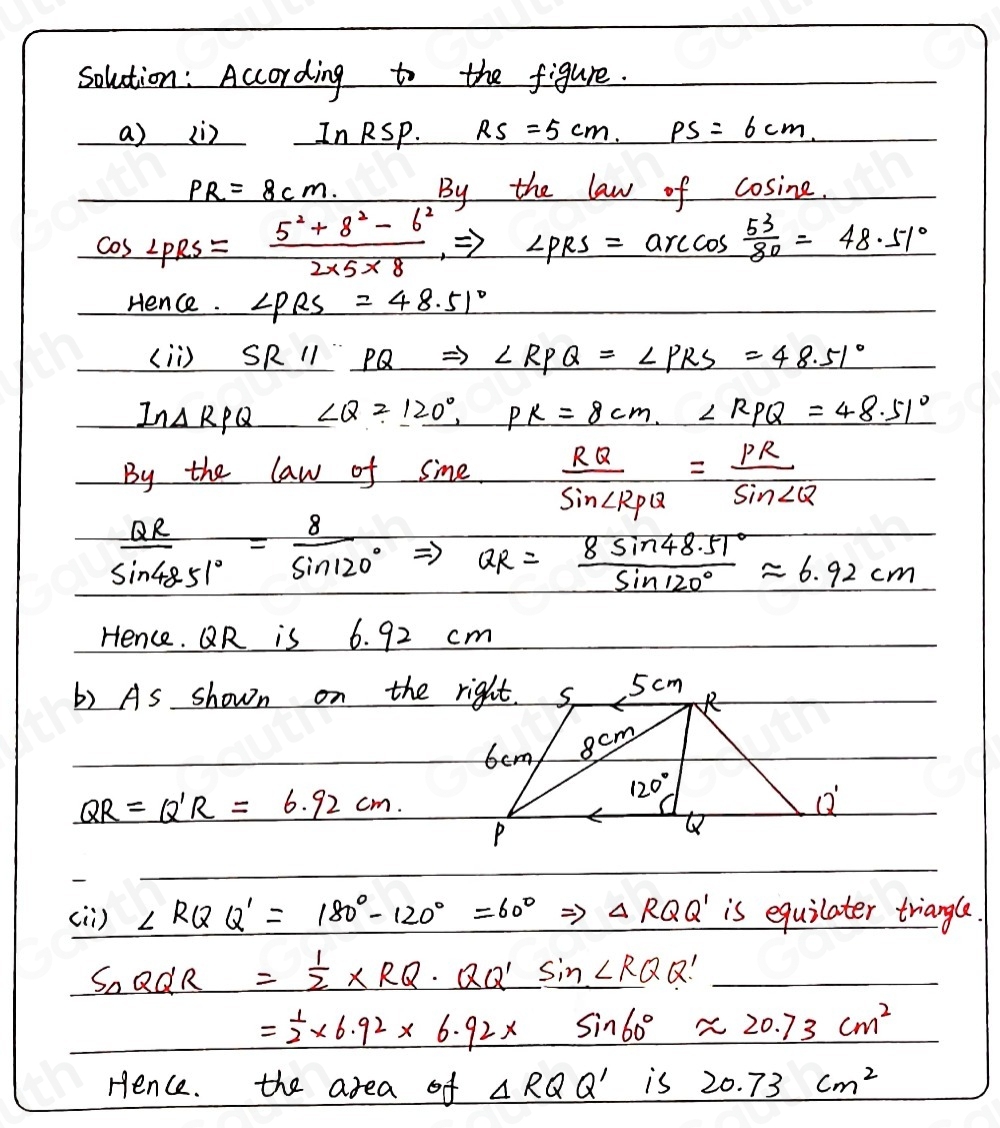 Solution: According to the figure.
a) <i> In RSP. RS = 5 cm. PS = 6 cm.
PR = 8 cm. By the law of cosine.
cos ∠PRS = (5² + 8² - 6²)/(2×5×8), => ∠PRS = arccos 53/80 = 48.51°
Hence. ∠PRS = 48.51°
<ii> SR // PQ => ∠RPQ = ∠PRS = 48.51°
In△RPQ ∠Q = 120°, PR = 8 cm. ∠RPQ = 48.51°
By the law of sine RQ/Sin∠RPQ = PR/Sin∠Q
QR/Sin48.51° = 8/Sin120° => QR = 8 Sin48.51°/Sin120° ≈ 6.92 cm
Hence. QR is 6.92 cm
b) As shown on the right.
S 5cm R
6cm 8cm
120°
P Q Q'
QR = Q'R = 6.92 cm.
<ii) ∠RQQ' = 180° - 120° = 60° => △RQQ' is equilater triangle.
S△QQ'R = 1/2 × RQ · QQ' Sin∠RQQ'
= 1/2 × 6.92 × 6.92 × Sin60° ≈ 20.73 cm²
Hence. the area of △RQQ' is 20.73 cm²
Gauth